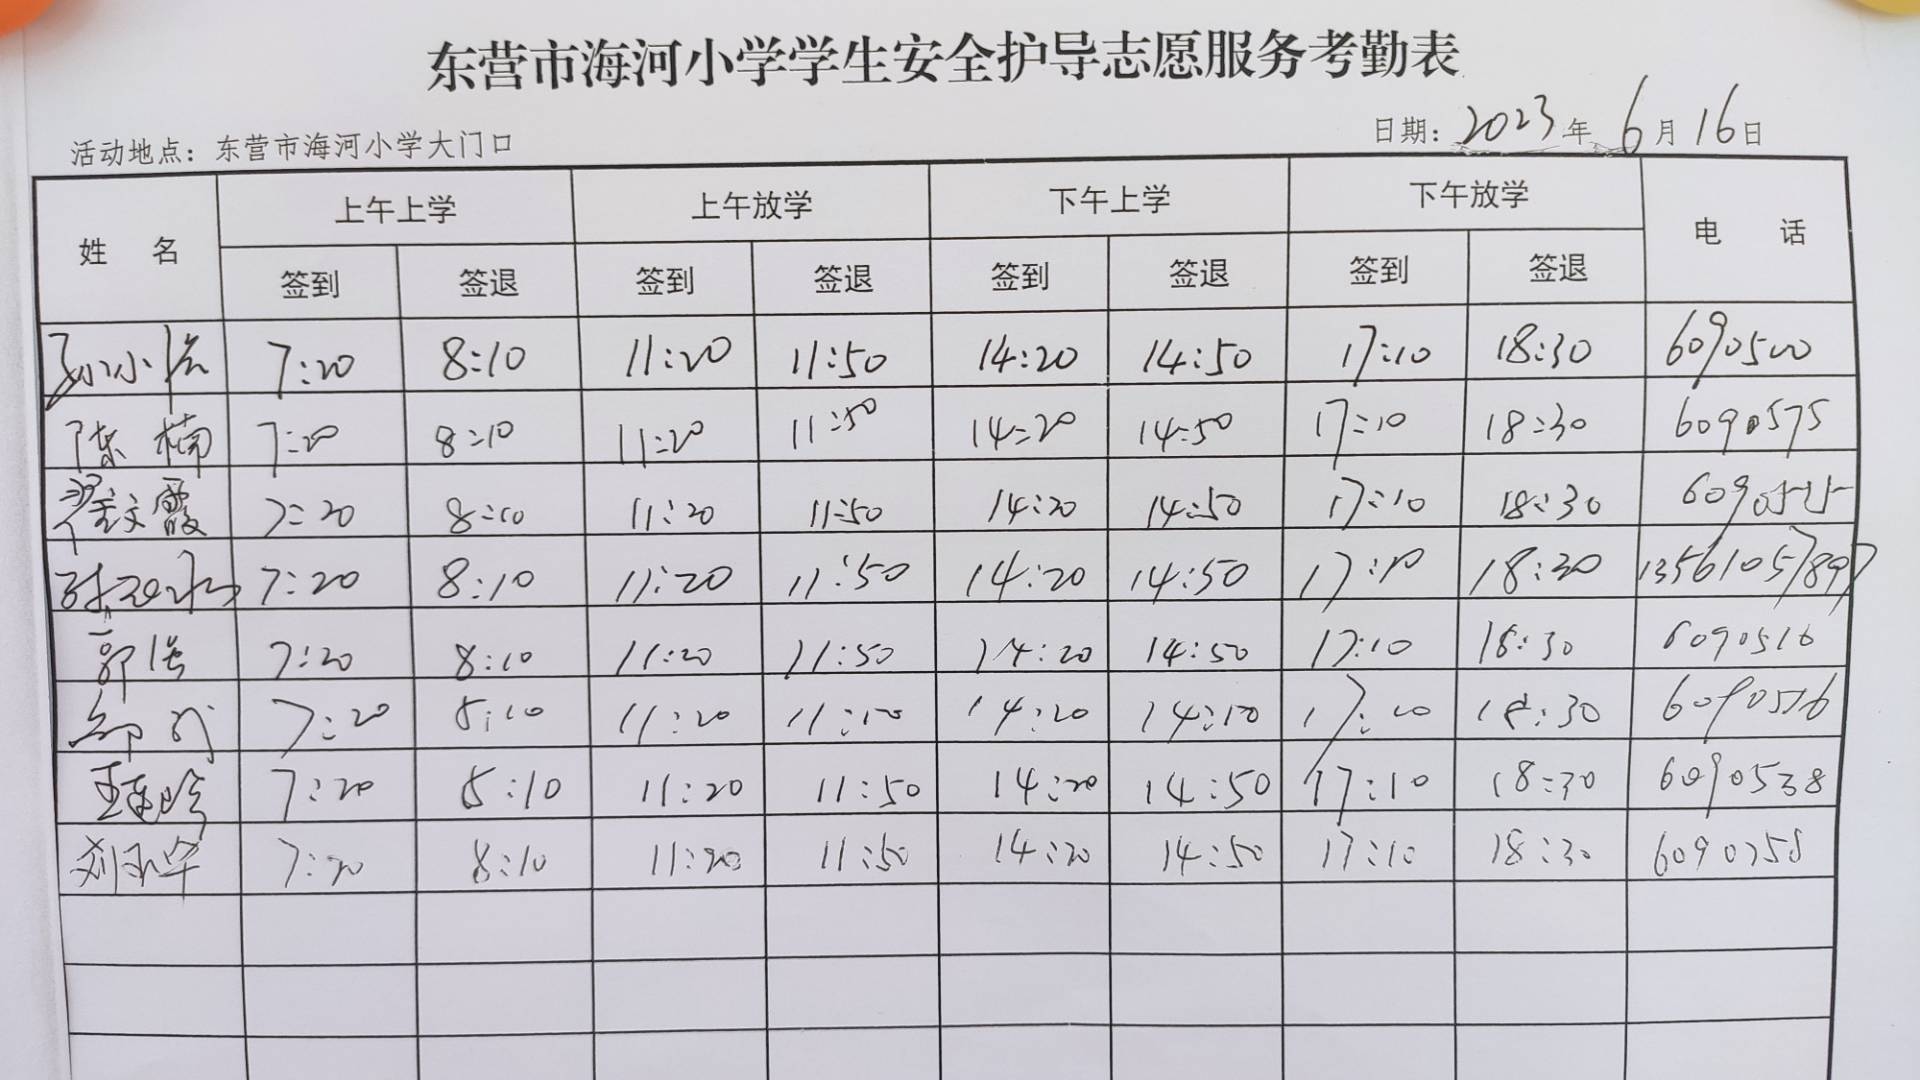 东营市海河小学学生安全护导志愿服务考勤表
活动地点：东营市海河小学大门口 日期：2023年6月16日
姓 名 上午上学 上午放学 下午上学 下午放学 电 话
签到 签退 签到 签退 签到 签退 签到 签退
7:20 8:10 11:20 11:50 14:20 14:50 17:10 18:30 6090500
陈楠 7:20 8:10 11:20 11:50 14:20 14:50 17:10 18:30 6090575
翟文霞 7:20 8:10 11:20 11:50 14:20 14:50 17:10 18:30 6090525
7:20 8:10 11:20 11:50 14:20 14:50 17:10 18:30 13561057897
郭 7:20 8:10 11:20 11:50 14:20 14:50 17:10 18:30 6090516
7:20 8:10 11:20 11:50 14:20 14:50 17:10 18:30 6090516
7:20 8:10 11:20 11:50 14:20 14:50 17:10 18:30 6090538
7:20 8:10 11:20 11:50 14:20 14:50 17:10 18:30